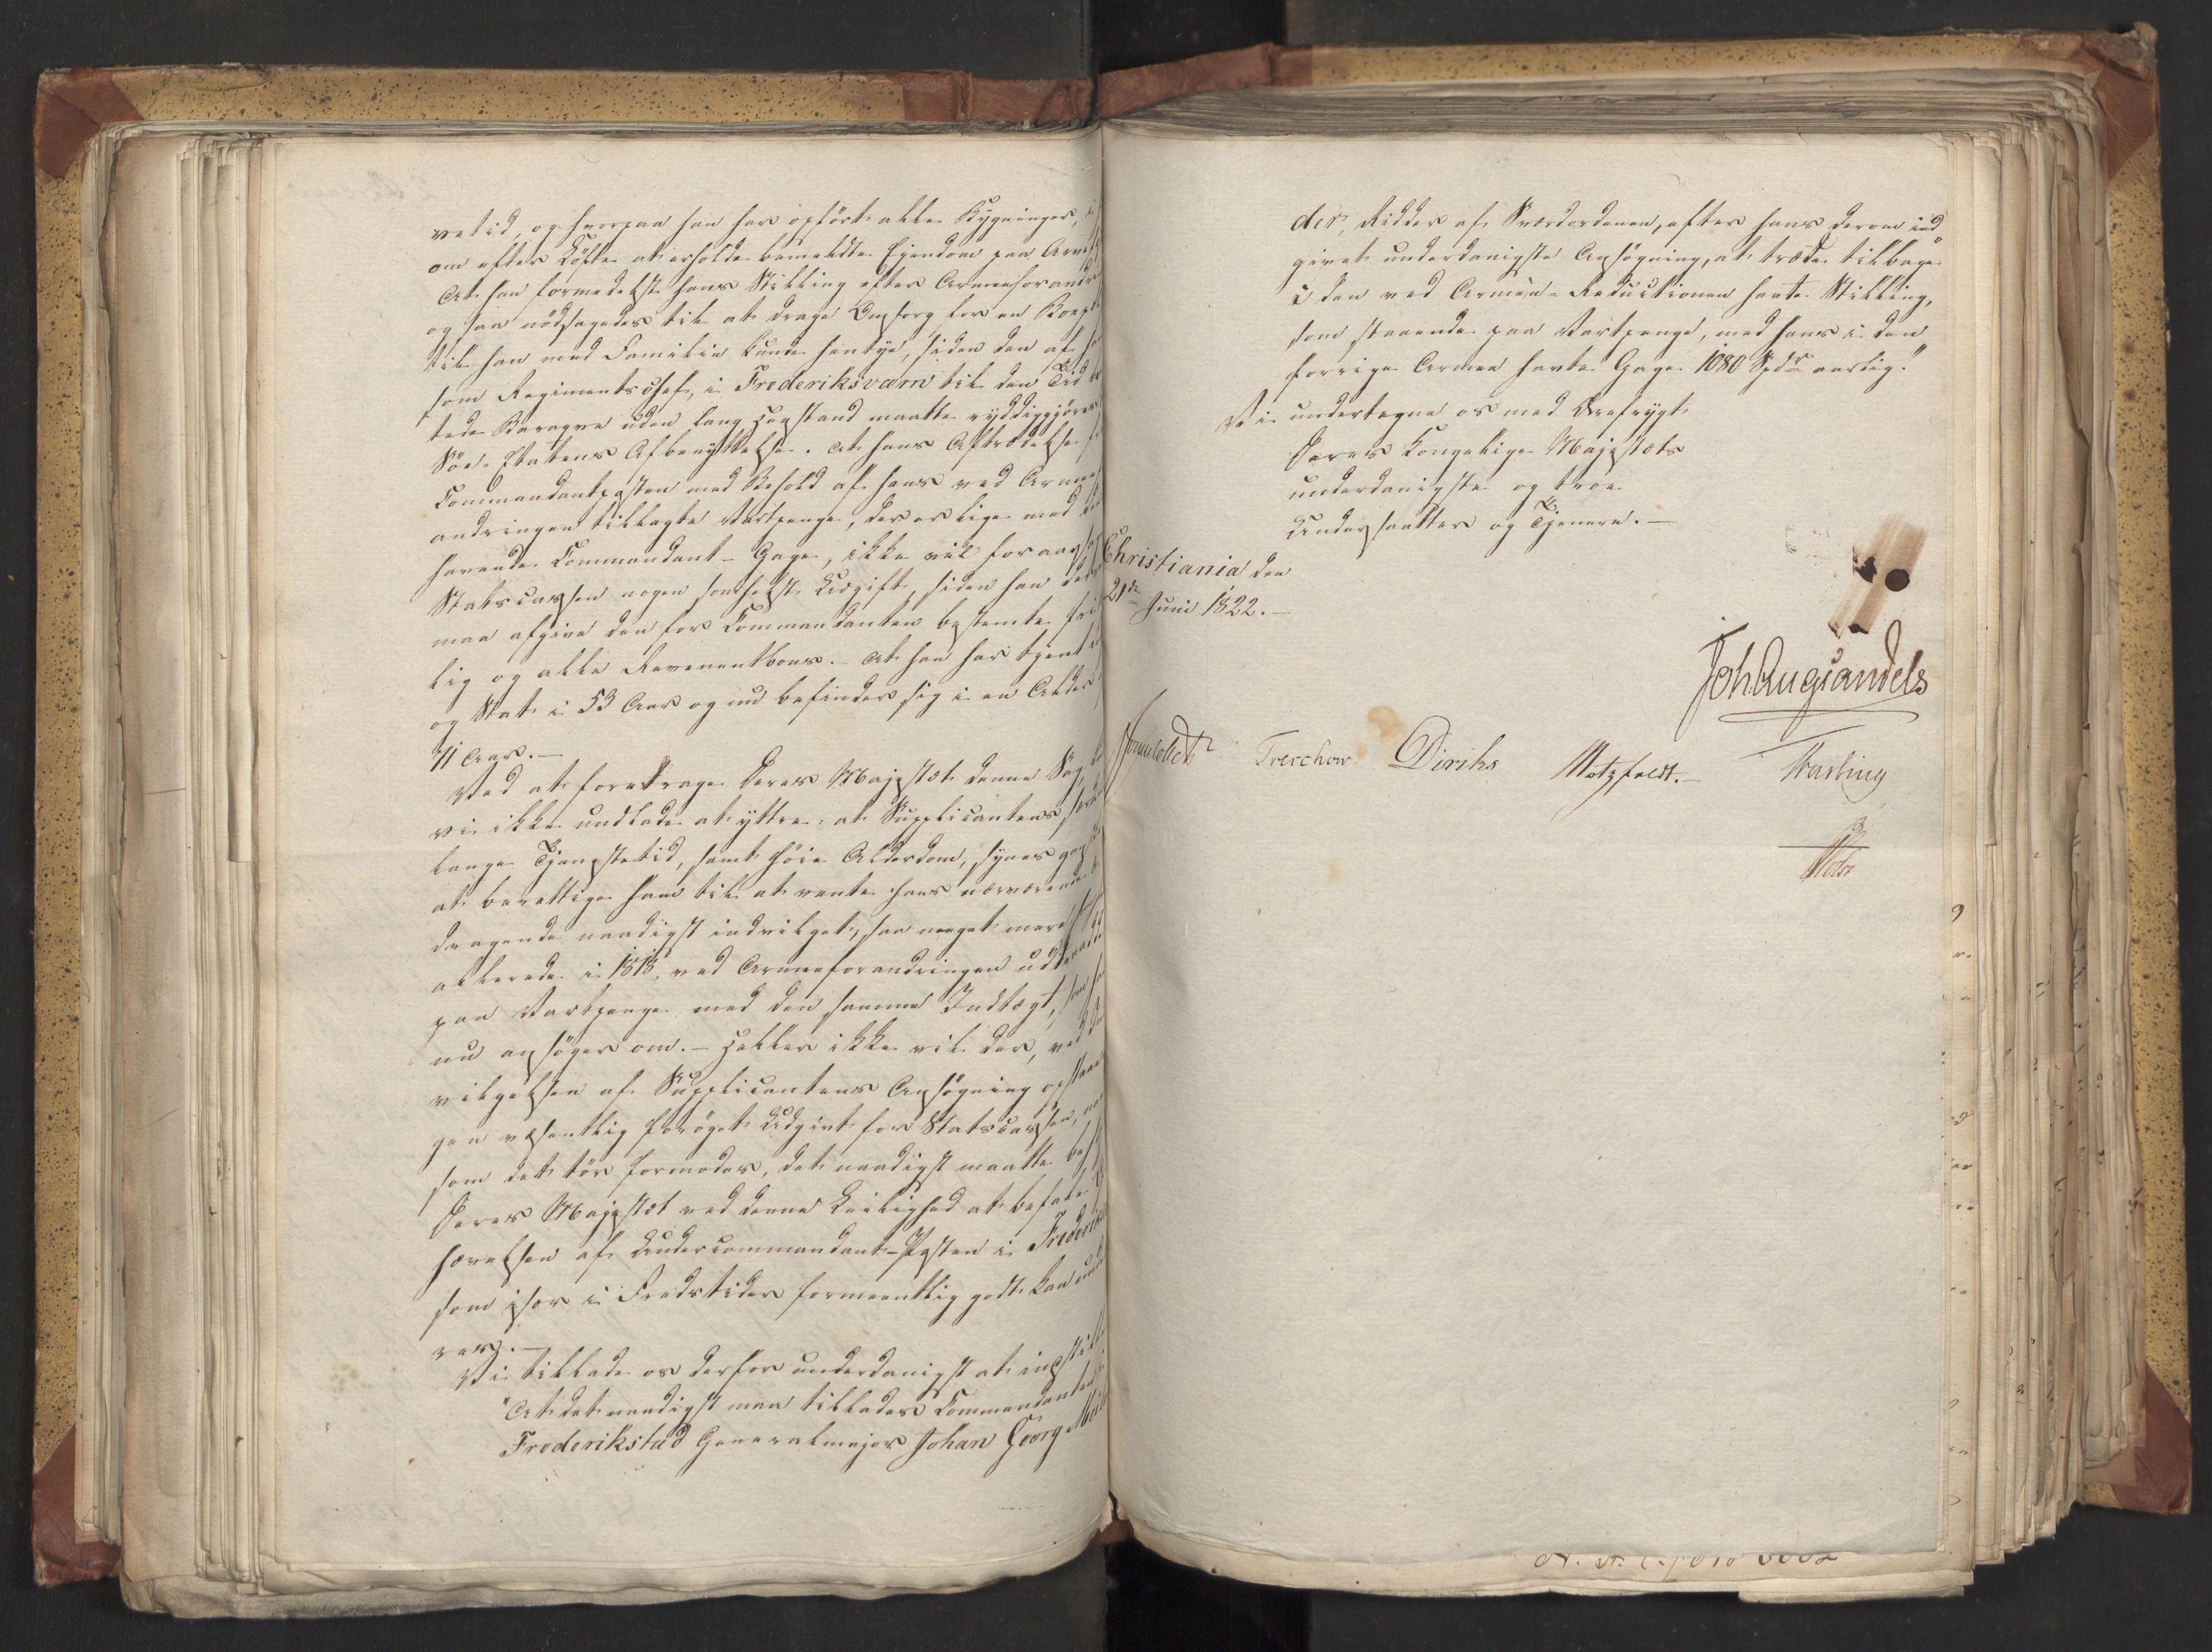 vetid, og hvorpaa han har opført alle Bygninger,
om efter Løfte at erholde bemeldte Eiendom paa
At han formedelst hans Stilling efter
og saa nødsagedes til at drage Omsorg for en
til han med Familie kunde hentye, siden den af
som Regimentschef, i Frederiksværn til den Tid
tede Baraque uden lang Henstand maatte ryddiggjøres
Søe-Etatens Afbenyttelse. At hans Aftrædelse
Commandantposten med Behold af hans ved
andringen tillagte Vartpenge, der er lige med
havende Commandant-Gage, ikke vil foraarsage
Statscassen nogen somhelst Udgift, siden han
maa afgive den for Commandanten bestemte
lig og alle Revenentboer. – At han har tjent
og Stat i 53 Aar og nu befinder sig i en Alder
71 Aar. –
Ved at foredrage Deres Majestæt denne Sag
vi ikke undlade at yttre: at Supplicantens
lange Tjenestetid, samt høie Alderdom, synes
at berettige ham til at vente hans nærværende
dragende naadigst indvilget, saa meget mere
allerede i 1818, ved Armeeforandringen
paa Vartpenge med den samme Indtægt, som han
nu ansøger om. – Heller ikke vil der, ved
vilgelsen af Supplicantens Ansøgning opstaae
gen væsentlig forøget Udgivt for Statscassen,
som det tør formodes, det naadigst maatte
Deres Majestæt ved denne Leilighed at befale
hævelsen af Undercommandant-Posten i
som især i Fredstider formeentlig godt kan
res. –
Vi tillade os derfor underdanigst at
"At det naadigst maa tillades Commandanten
Frederikstad Generalmajor Johan Georg
der, Ridder af Sværdordenen, efter hans derom ind
givet underdanigste Ansøgning, at træde tilbage
i den ved Armee-Reductionen havte Stilling,
som staaende paa Vartpenge, med hans i den
forrige Armee havte Gage 1080 Spdr aarlig."
Vi undertegne os med Ærefrygt
Deres Kongelige Majestæts
underdanigste og troe
Undersaatter og Tjenere. –
Christiania den
21de Juni 1822. –
JohAugSandels
Sommerfeldt Treschow Diriks Motzfeldt. – Fasting